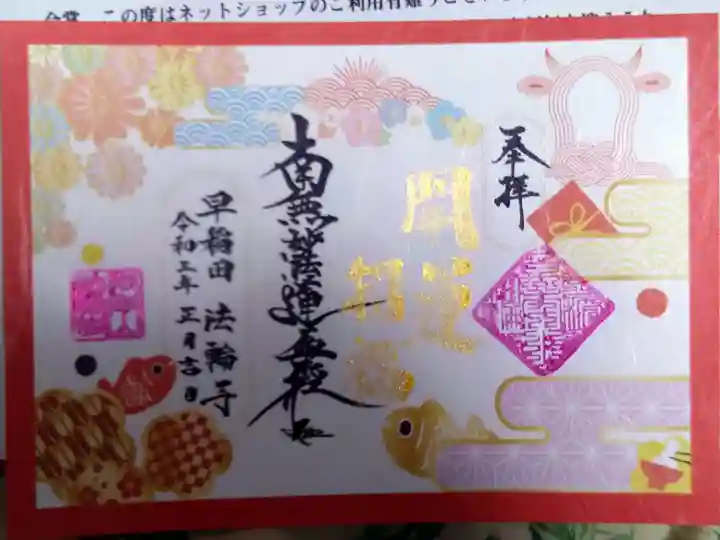 この度はネットショップのご利用有難うござい
奉拝
開運
招福
南無妙法蓮華経
早稲田 法輪寺
令和三年 正月吉日